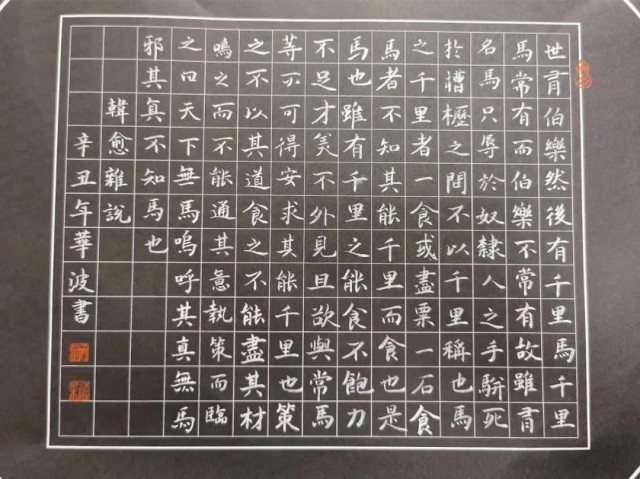 世有伯樂然後有千里馬千里
馬常有而伯樂不常有故雖有
名馬只辱於奴隸人之手駢死
於槽櫪之間不以千里稱也馬
之千里者一食或盡粟一石食
馬者不知其能千里而食也是
馬也雖有千里之能食不飽力
不足才美不外見且欲與常馬
等不可得安求其能千里也策
之不以其道食之不能盡其材
鳴之而不能通其意執策而臨
之曰天下無馬嗚呼其真無馬
邪其真不知馬也
韓愈雜說
辛丑年華波書